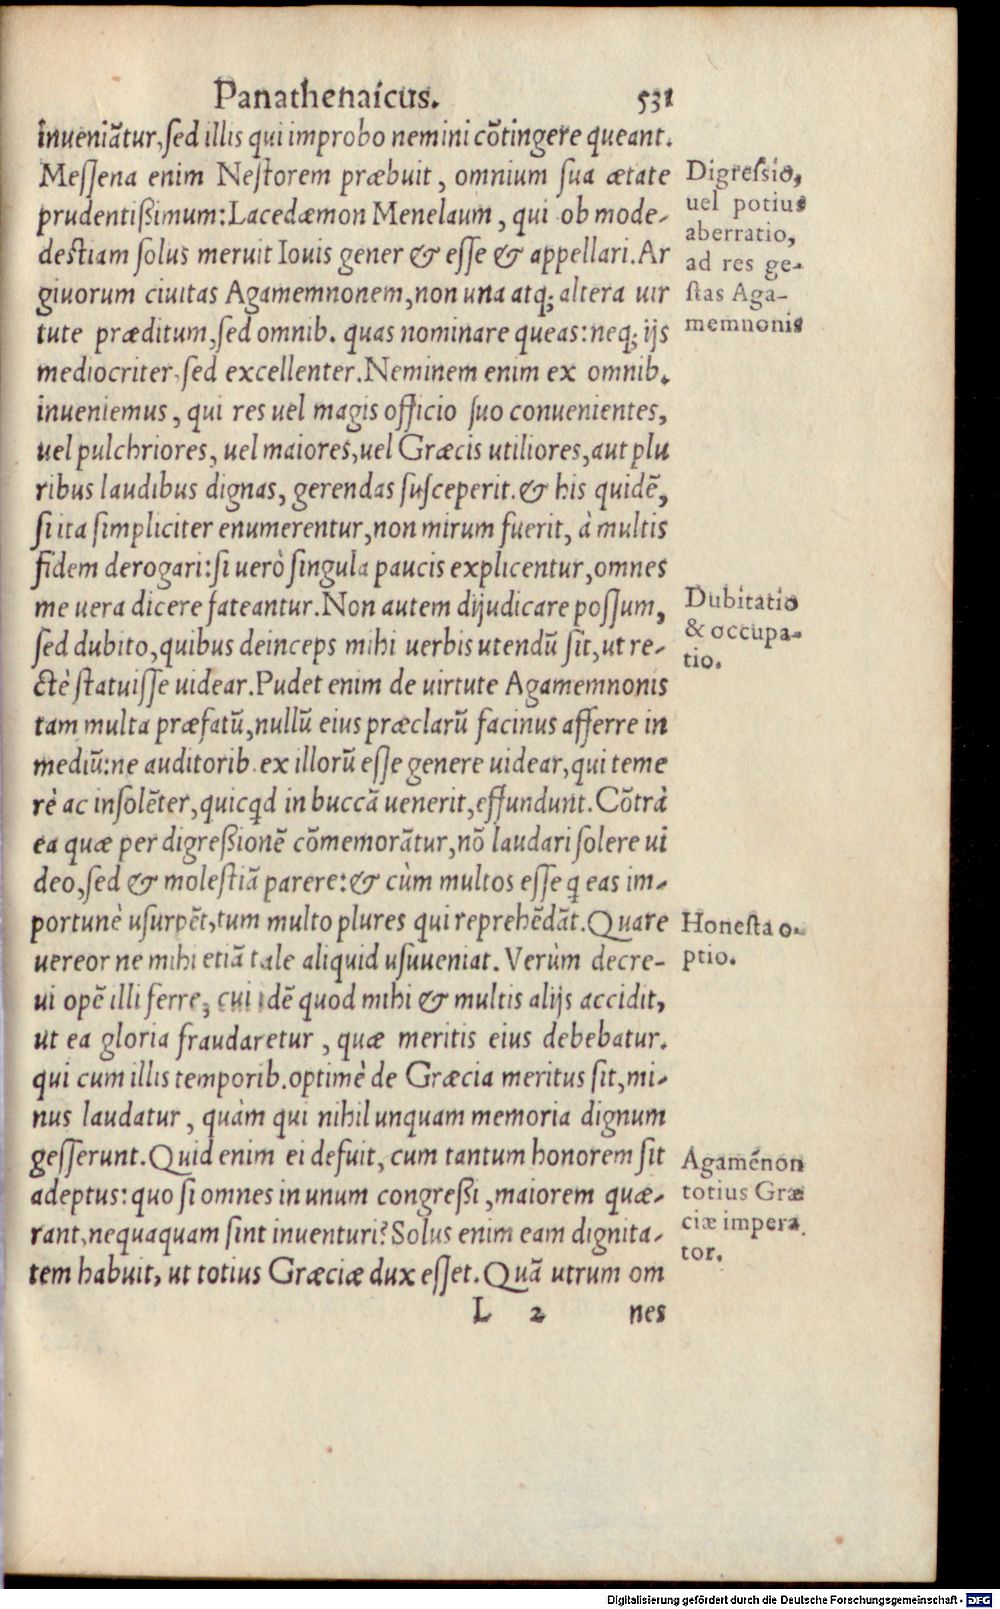 Panathenaicus. 531
inueniãtur, sed illis qui improbo nemini cõtingere queant.
Messena enim Nestorem præbuit, omnium sua ætate
prudentißimum: Lacedæmon Menelaum, qui ob mode-
destiam solus meruit Iouis gener & esse & appellari. Ar
giuorum ciuitas Agamemnonem, non una atq; altera uir
tute præditum, sed omnib. quas nominare queas: neq; ijs
mediocriter, sed excellenter. Neminem enim ex omnib.
inueniemus, qui res uel magis officio suo conuenientes,
uel pulchriores, uel maiores, uel Græcis utiliores, aut plu
ribus laudibus dignas, gerendas susceperit. & his quidẽ,
si ita simpliciter enumerentur, non mirum fuerit, à multis
fidem derogari: si uerò singula paucis explicentur, omnes
me uera dicere fateantur. Non autem dijudicare possum,
sed dubito, quibus deinceps mihi uerbis utendũ sit, ut re-
ctè statuisse uidear. Pudet enim de uirtute Agamemnonis
tam multa præfatũ, nullũ eius præclarũ facinus afferre in
mediũ: ne auditorib. ex illorũ esse genere uidear, qui teme
rè ac insolẽter, quicqd in buccã uenerit, effundunt. Cõtrà
ea quæ per digreßionẽ cõmemorãtur, nõ laudari solere ui
deo, sed & molestiã parere: & cùm multos esse q̃ eas im-
portunè usurpẽt, tum multo plures qui reprehẽdãt. Quare
uereor ne mihi etiã tale aliquid usuueniat. Verùm decre-
ui opẽ illi ferre, cui idẽ quod mihi & multis alijs accidit,
ut ea gloria fraudaretur, quæ meritis eius debebatur.
qui cum illis temporib. optimè de Græcia meritus sit, mi-
nus laudatur, quàm qui nihil unquam memoria dignum
gesserunt. Quid enim ei defuit, cum tantum honorem sit
adeptus: quo si omnes in unum congreßi, maiorem quæ-
rant, nequaquam sint inuenturi? Solus enim eam dignita-
tem habuit, ut totius Græciæ dux esset. Quã utrum om
L 2 nes
Digreſsio,
uel potius
aberratio,
ad res ge-
stas Aga-
memnonis
Dubitatio
& occupa-
tio.
Honesta o-
ptio.
Agamẽnon
totius Græ
ciæ impera
tor.
Digitalisierung gefördert durch die Deutsche Forschungsgemeinschaft - DFG